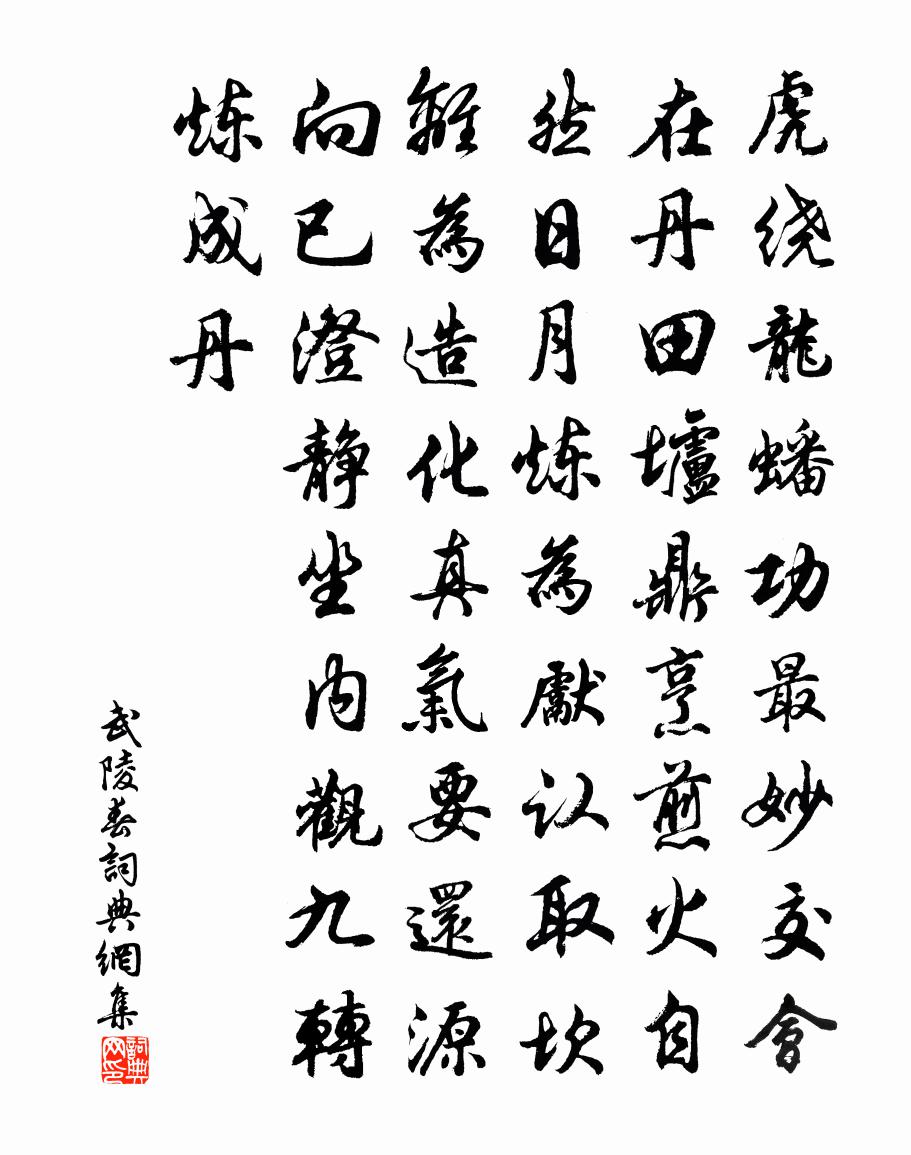 虎绕龍蟠功最妙交會
在丹田壚鼎烹煎火自
然日月炼為獻认取坎
離為造化真氣要還源
向已澄静坐内觀九轉
炼成丹
武陵春詞典網集
詞典网印